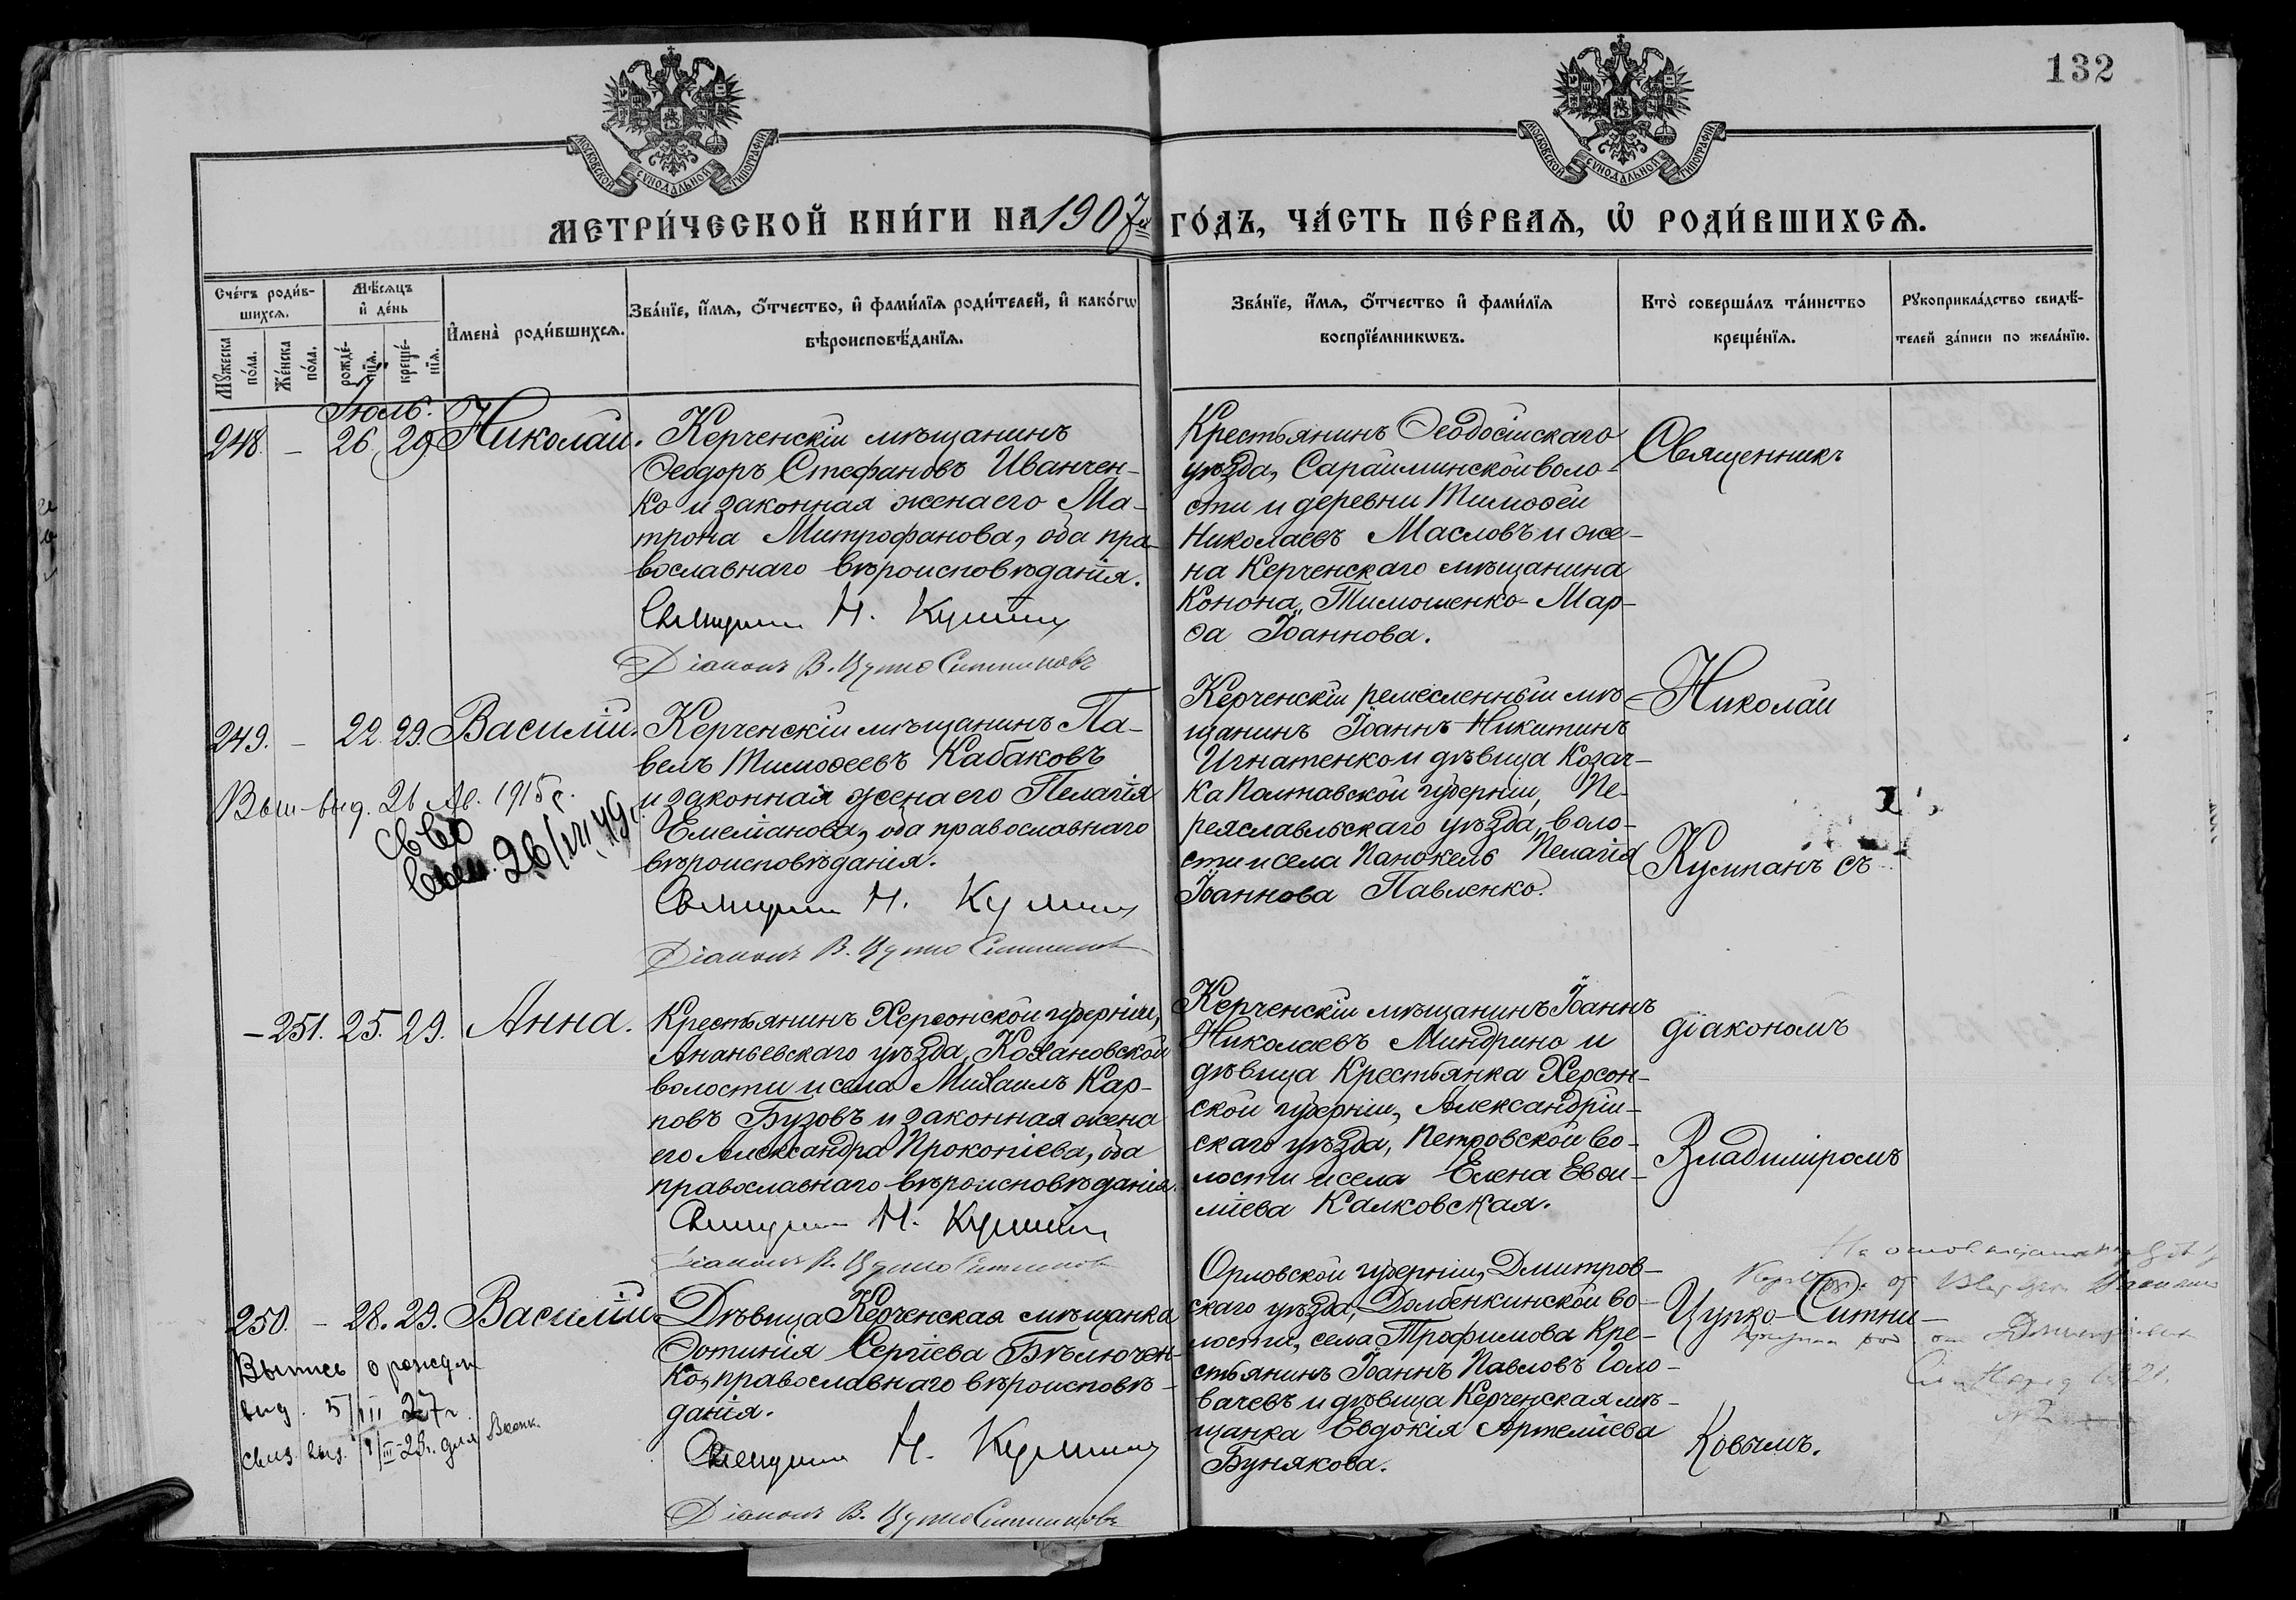 132
МОСКОВСКОЙ СѴНОДАЛЬНОЙ ТИПОГРАФІИ
МОСКОВСКОЙ СѴНОДАЛЬНОЙ ТИПОГРАФІИ
МЕТРИ́ЧЕСКОЙ КНИ́ГИ НА 1907й ГО́ДЪ, ЧА́СТЬ ПЕ́РВАѦ, Ѡ҆ РОДИ́ВШИХСѦ.
Сче́тъ роди́в-
шихсѧ.
Мꙋ́жеска по́ла.
Же́нска по́ла.
Мѣ́сѧцъ
и҆ де́нь
рожде́-
нїѧ.
креще́-
нїѧ.
И҆мена̀ роди́вшихсѧ.
Зва́нїе, и҆́мѧ, ѻ҆́тчество, и҆ фами́лїѧ роди́телей, и҆ како́гѡ
вѣроисповѣ́данїѧ.
Зва́нїе, и҆́мѧ, ѻ҆́тчество и҆ фами́лїѧ
воспрїе́мникѡвъ.
Кто̀ соверша́лъ та́инство
креще́нїѧ.
Рꙋкоприкла́дство свидѣ́-
телей за́писи по жела́нїю.
Іюль.
248. – 26. 29. Николай.
Керченскій мѣщанинъ
Ѳеодоръ Стефановъ Иванчен-
ко и законная жена его Ма-
трона Митрофанова, оба пра-
вославнаго вѣроисповѣданія.
Священник Н. Кумпан
Діаконъ В. Цупко Ситниковъ
Крестьянинъ Ѳеодосійскаго
уѣзда, Сарайминской воло-
сти и деревни Тимоѳей
Николаевъ Масловъ и же-
на Керченскаго мѣщанина
Конона Тимошенко - Мар-
ѳа Іоаннова.
Священникъ
249. – 22. 29. Василій.
Выш- выд. 21 Ав. 1915 г.
26/VII 49 г.
Керченскій мѣщанинъ Па-
велъ Тимоѳеевъ Кабаковъ
и законная жена его Пелагія
Емеліанова, оба православнаго
вѣроисповѣданія.
Священник Н. Кумпан
Діаконъ В. Цупко Ситников
Керченскій ремесленный мѣ-
щанинъ Іоаннъ Никитинъ
Игнатенко и дѣвица Козач-
ка Полтавской губерніи, Пе-
реяславльскаго уѣзда, воло-
сти и села Пенагія
Іоаннова Павленко.
Николай
Кумпанъ съ
– 251. 25. 29. Анна.
Крестьянинъ Херсонской губерніи,
Ананьевскаго уѣзда, Кохановской
волости и села Михаилъ Кар-
повъ Бузовъ и законная жена
его Александра Прокопіева, оба
православнаго вѣроисповѣданія.
Священник Н. Кумпан
Діаконъ В. Цупко Ситников
Керченскій мѣщанинъ Іоаннъ
Николаевъ Миндрино и
дѣвица Крестьянка Херсон-
ской губерніи, Александрій-
скаго уѣзда, Петровской во-
лости и села Елена Евѳи-
міева Калковская.
діакономъ
Владиміромъ
250. – 28. 29. Василій.
Выпись о рожден
выд. 5/III 27 г.
Дѣвица Керченская мѣщанка
Фотинія Сергіева Бѣлючен-
ко, православнаго вѣроисповѣ-
данія.
Священник Н. Кумпан
Діаконъ В. Цупко Ситниковъ
Орловской губерніи, Дмитров-
скаго уѣзда, Долбенкинской во-
лости, села Трофимова Кре-
стьянинъ Іоаннъ Павловъ Голо-
вачевъ и дѣвица Керченская мѣ-
щанка Евдокія Артеміева
Бунякова.
Цупко-Ситни-
ковымъ.